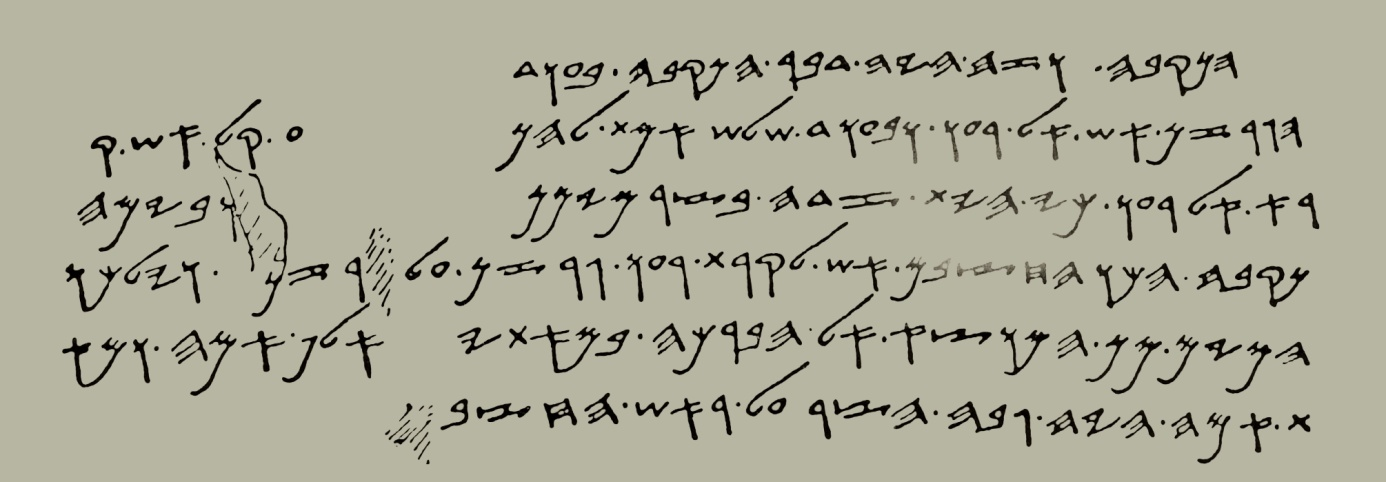 𐤄𐤍𐤒𐤁𐤄. 𐤅𐤆𐤄.𐤄𐤉𐤄.𐤃𐤁𐤓.𐤄𐤍𐤒𐤁𐤄.𐤁𐤏𐤅𐤃
𐤄𐤂𐤓𐤆𐤍.𐤀𐤔.𐤀𐤋.𐤓𐤏𐤅.𐤅𐤁𐤏𐤅𐤃.𐤔𐤋𐤔 𐤀𐤌𐤕.𐤋𐤄𐤍 𐤏.𐤒𐤋.𐤀𐤔.𐤒
𐤓𐤀.𐤀𐤋 𐤓𐤏𐤅.𐤊𐤉.𐤄𐤉𐤕.𐤆𐤃𐤄.𐤁𐤑𐤓 𐤌𐤉𐤌𐤍 𐤁𐤉𐤌𐤄
𐤍𐤒𐤁𐤄.𐤄𐤊𐤅 𐤄𐤇𐤑𐤁𐤌.𐤀𐤔.𐤋𐤒𐤓𐤕.𐤓𐤏𐤅.𐤂𐤓𐤆𐤍.𐤏𐤋 𐤓𐤆𐤍.𐤅𐤉𐤋𐤊𐤅
𐤄𐤌𐤉𐤌.𐤌𐤍.𐤄𐤌𐤅𐤑𐤀.𐤀𐤋.𐤄𐤁𐤓𐤊𐤄.𐤁𐤌𐤀𐤕𐤉 𐤀𐤋𐤐.𐤀𐤌𐤄.𐤅𐤌𐤀
𐤕.𐤀𐤌𐤄.𐤄𐤉𐤄.𐤂𐤁𐤄.𐤄𐤑𐤓 𐤏𐤋.𐤓𐤀𐤔.𐤄𐤇𐤑𐤁